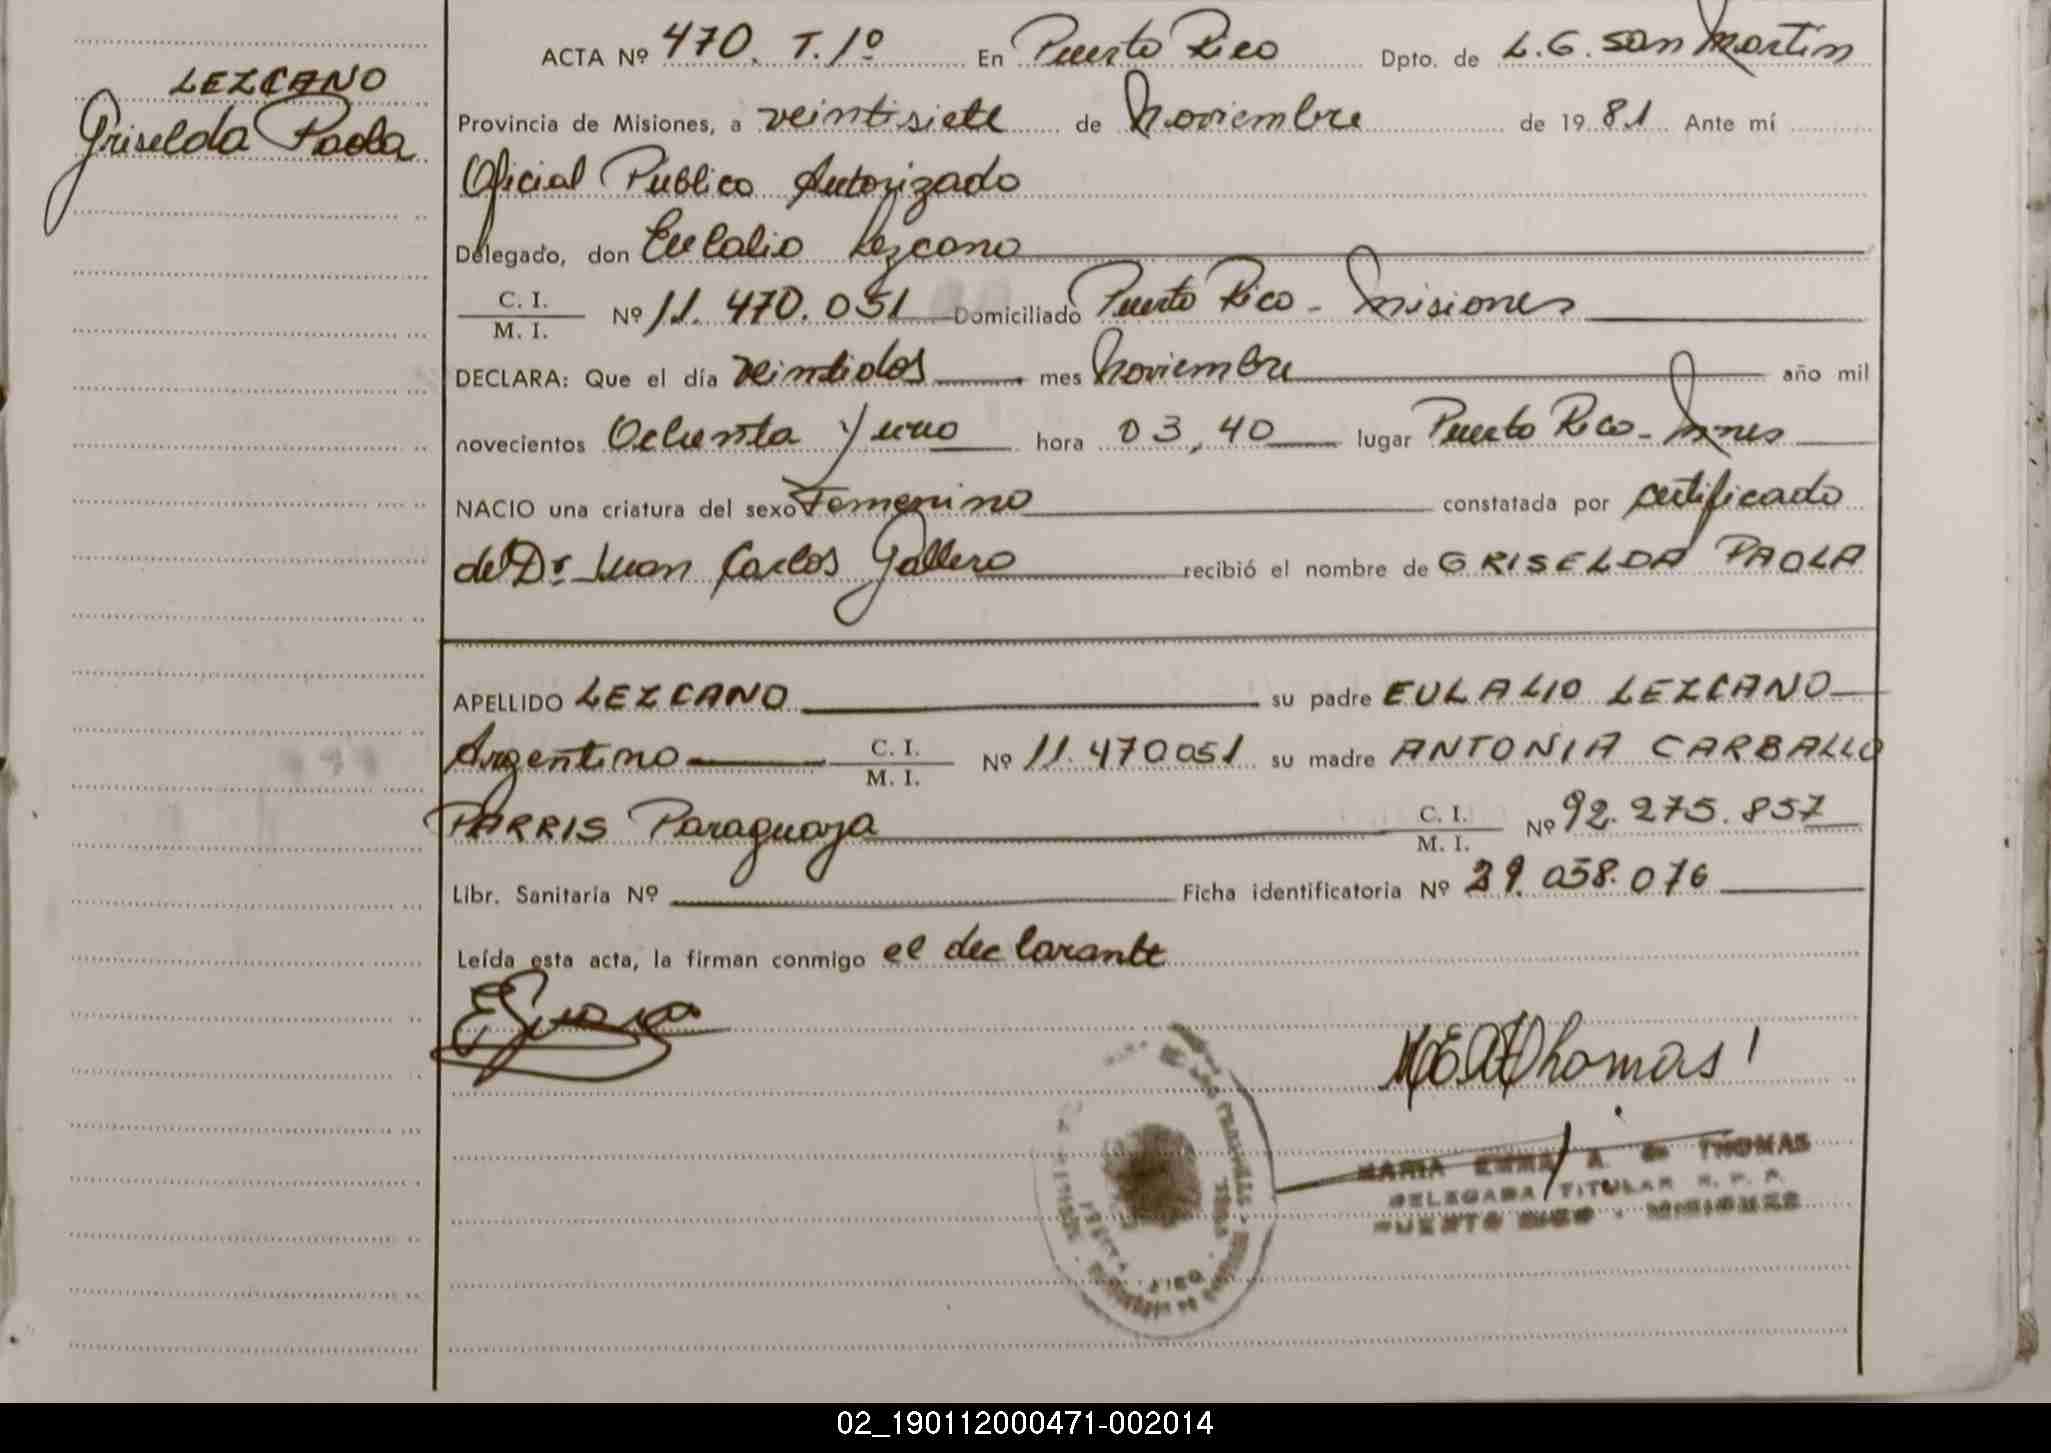 LEZCANO
Griselda Paola
ACTA Nº 470. T. 1º En Puerto Rico Dpto. de L. G. San Martin
Provincia de Misiones, a veintisiete de Noviembre de 1981 Ante mí
Oficial Publico Autorizado
Delegado, don Eulalio Lezcano
C. I.
M. I. Nº 11.470.051 Domiciliado Puerto Rico - Misiones
DECLARA: Que el día veintidos mes Noviembre año mil
novecientos Ochenta y uno hora 03,40 lugar Puerto Rico - Mnes
NACIO una criatura del sexo Femenino constatada por certificado
del Dr. Juan Carlos Gallero recibió el nombre de GRISELDA PAOLA
APELLIDO LEZCANO su padre EULALIO LEZCANO
Argentino C. I.
M. I. Nº 11.470051 su madre ANTONIA CARBALLO
PARRIS Paraguaya C. I.
M. I. Nº 92.275.857
Libr. Sanitaria Nº Ficha identificatoria Nº 29.058.076
Leída esta acta, la firman conmigo el declarante
Thomas
MARIA EMMA A. de THOMAS
DELEGADA TITULAR R. P. P.
PUERTO RICO - MISIONES
02_190112000471-002014